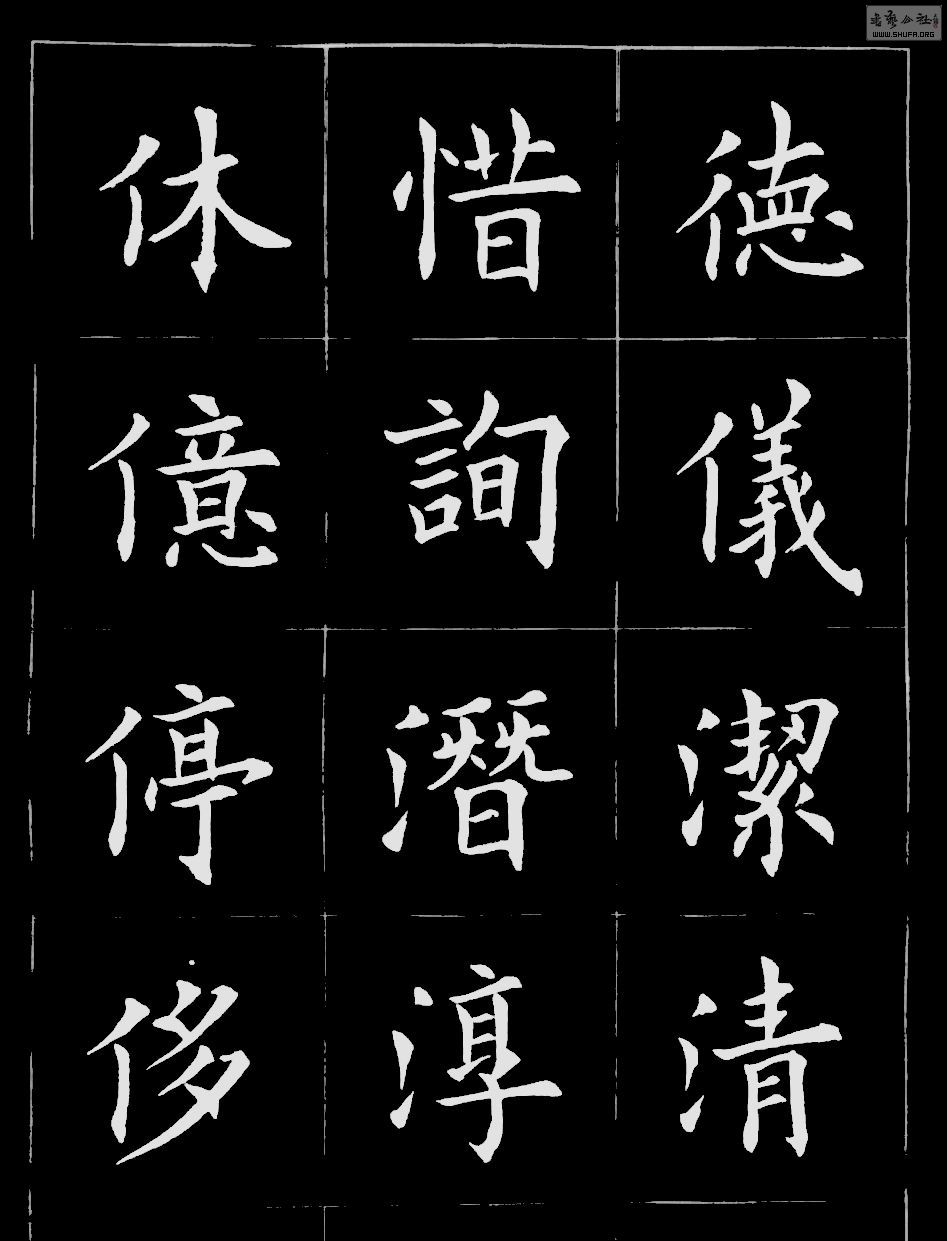 德儀潔清
惜詢潛淳
休億停侈
書藝公社
WWW.SHUFA.ORG